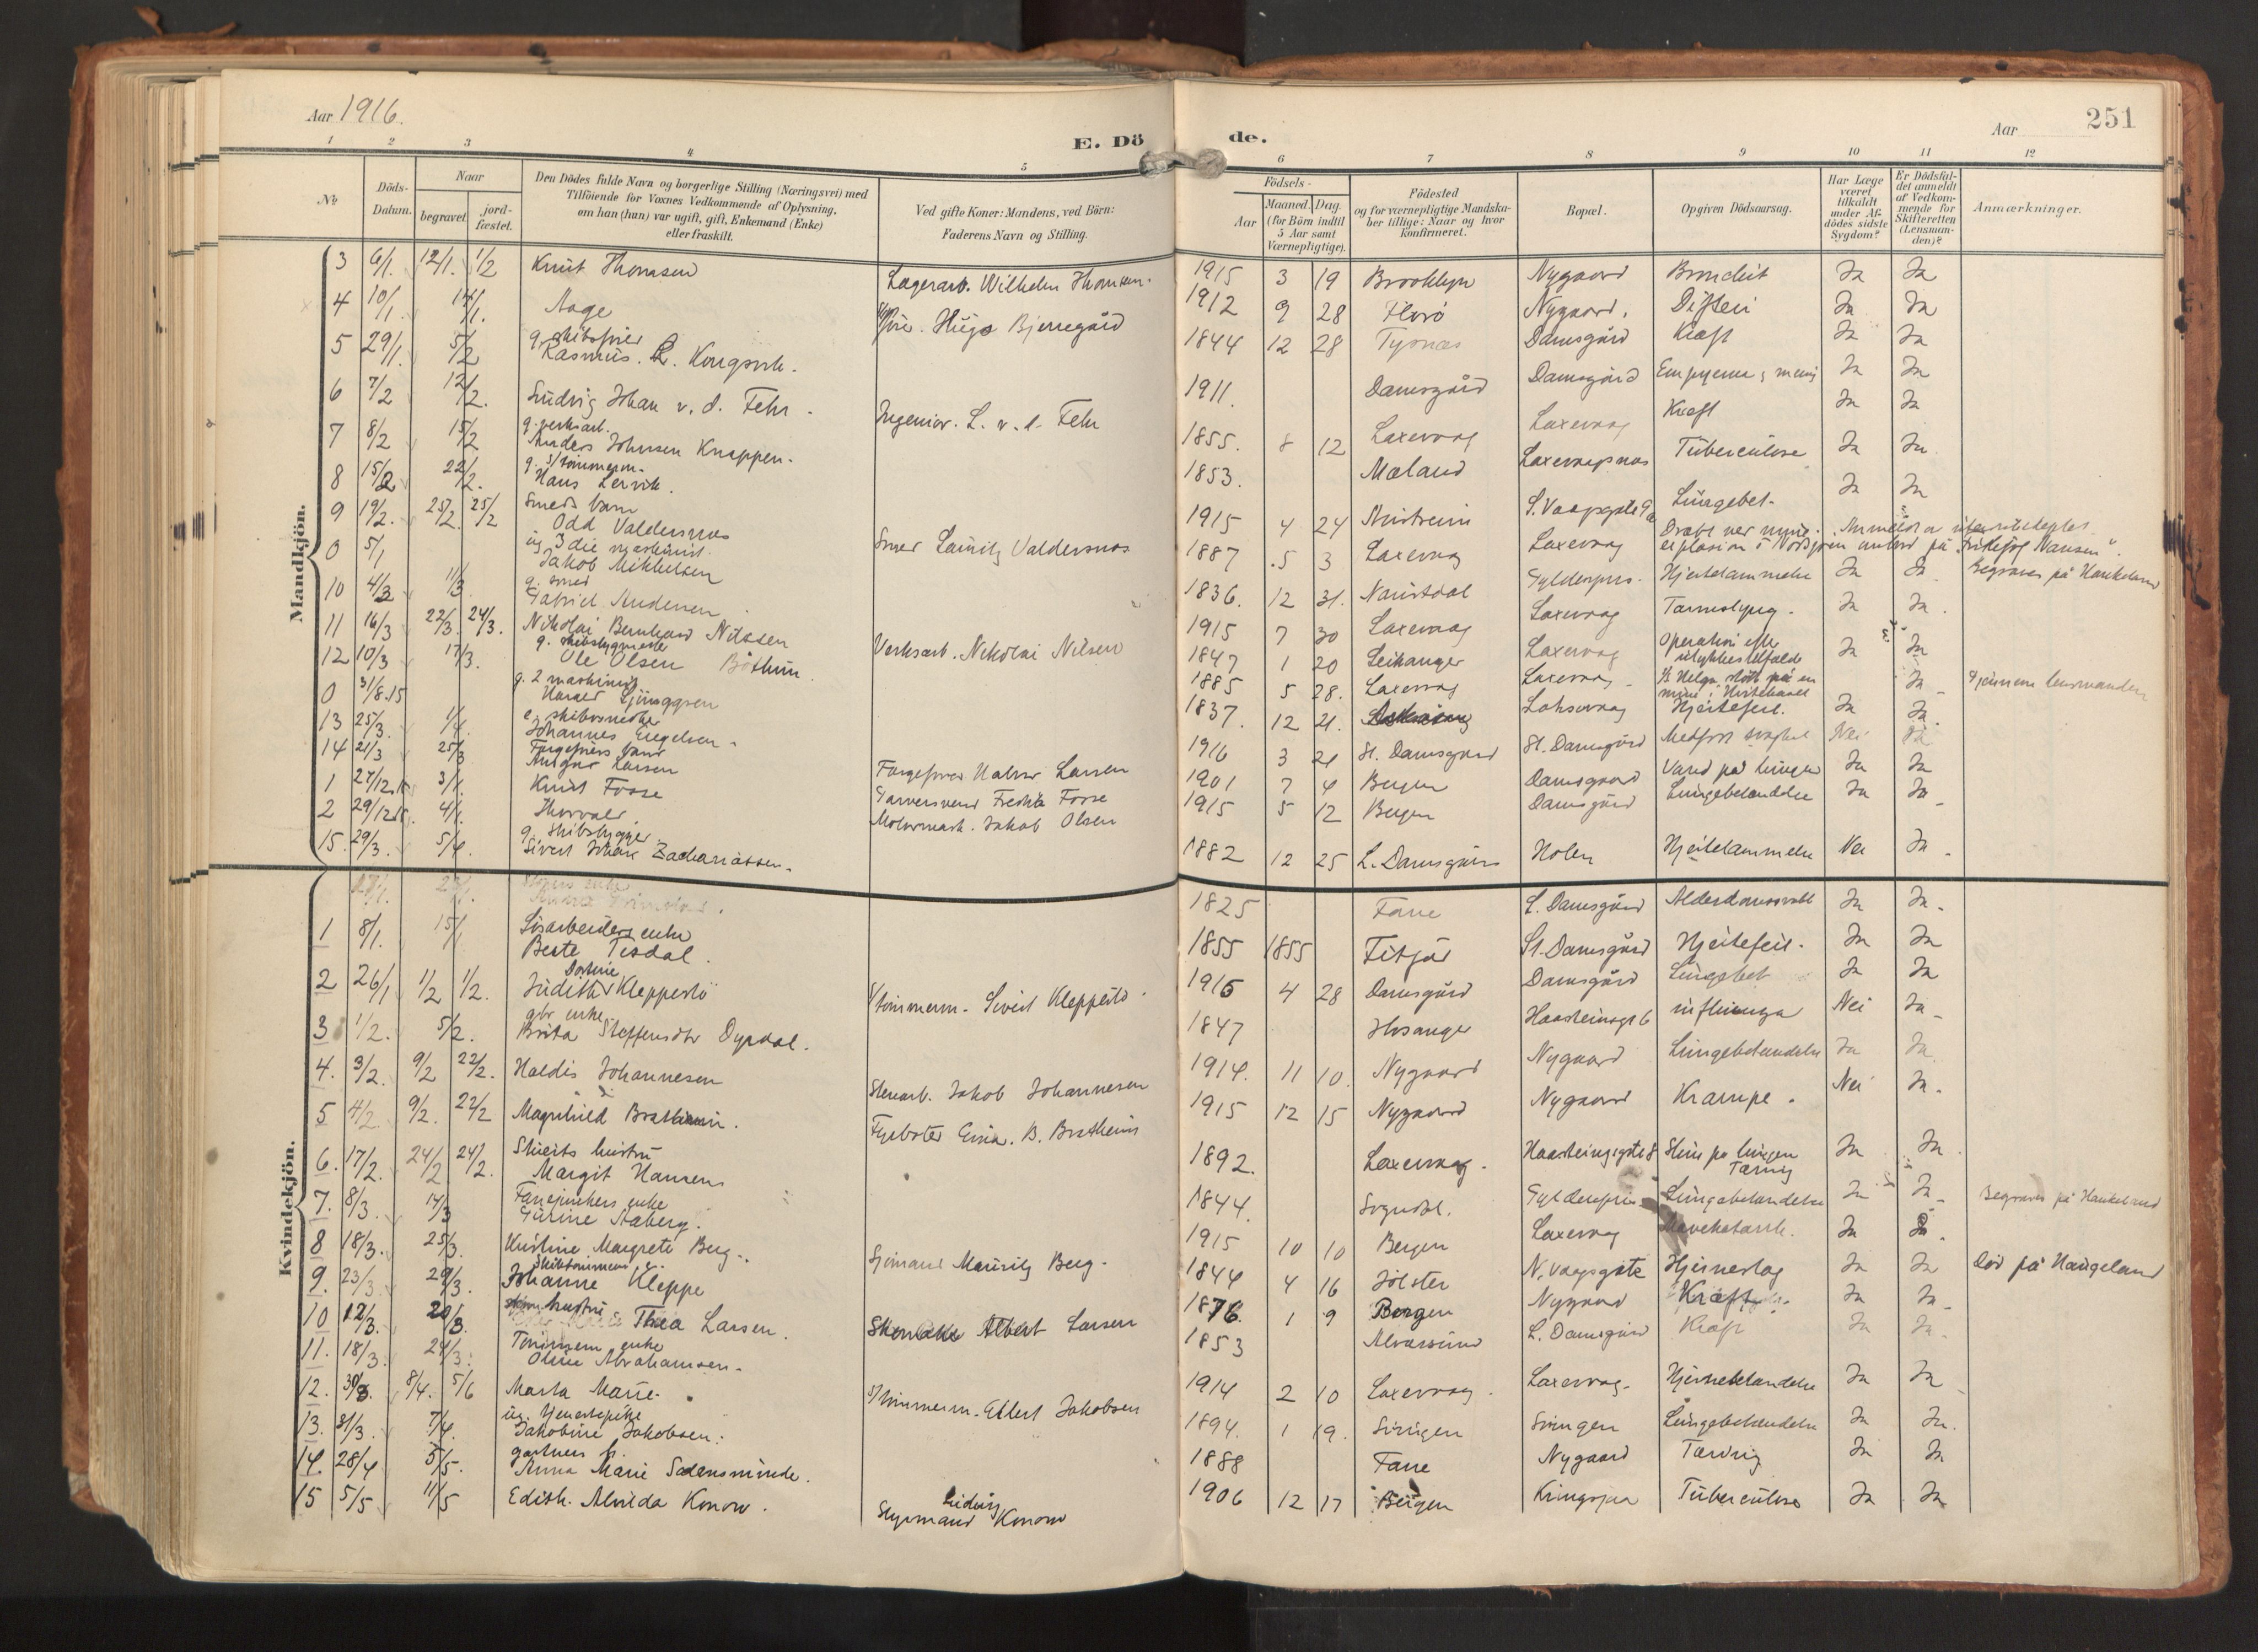 Aar 1916.
E. Dö
de.
Aar
251
1 2 3 4 5 6 7 8 9 10 11 12
No
Döds-
Datum.
Naar
begravet.
jord-
fæstet.
Den Dödes fulde Navn og borgerlige Stilling (Næringsvei) med
Tilföiende for Voxnes Vedkommende af Oplysning,
om han (hun) var ugift, gift, Enkemand (Enke)
eller fraskilt.
Ved gifte Koner: Mandens, ved Börn:
Faderens Navn og Stilling.
Födsels-
Aar
Maaned. Dag.
(for Börn indtil
5 Aar samt
Værnepligtige).
Födested
og for værnepligtige Mandska-
ber tillige: Naar og hvor
konfirmeret.
Bopæl.
Opgiven Dödsaarsag.
Har Læge
været
tilkaldt
under Af-
dödes sidste
Sygdom?
Er Dödsfal-
det anmeldt
af Vedkom-
mende for
Skifteretten
(Lensman-
den)?
Anmærkninger.
Mandkjön.
3 6/1. 12/1. 1/2 Knut Thomsen Lagerarb. Wilhelm Thomsen. 1915 3 19 Brooklyn Nygaard Bronchit Ja Ja
4 10/1. 14/1. Aage Hugo Bjerregård 1912 9 28 Florö Nygaard. Difteri Ja Ja
5 29/1. 5/2 g. skibsfører
Rasmus. R. Kongsvik. 1844 12 28 Tysnæs Damsgård Kræft Ja Ja
6 7/2 12/2. Ludvig Johan v. d. Fehr. Ingeniør. L. v. d. Fehr 1911. Damsgård Damsgård Empyeme Ja Ja
7 8/2 15/2 g. verksarb.
Anders Johnsen Knappen. 1855. 8 12 Laxevaag Laxevaag Kræft Ja Ja
8 15/2 22/2. g. s/tømmerm.
Hans Lervik. 1853. Mæland Laxevaagsnes Tuberculose Ja Ja
9 19/2. 25/2. 25/2 Smeds barn
Odd Valdersnes Smed Lauritz Valdersnes 1915 4 24 S. Vaagsgate 9a Lungebet. Ja Ja
0 5/1 ug 3die maskinist
Jakob Mikkelsen 1887 5 3 Laxevaag Laxevaag Dræbt ved mine-
explosion i Nordsjøen ombord på "Fridtjof Nansen".
10 4/3 11/3 g. smed
Gabriel Andersen 1836. 12 31. Naustdal Gyldenpris. Hjertelammelse Ja Ja Begraves på Haukeland
11 16/3 22/3. 24/3. Nikolai Bernhard Nilssen Verksarb. Nikolai Nilsen 1915 7 30 Laxevaag Laxevaag Tarmslyng. Ja Ja.
12 10/3 17/3. g. skibsbygmester
Ole Olsen Böthun. 1847 1 20 Leikanger Laxevaag Operation efter
ulykkestilfælde Ja Ja
0 31/8.15 g. 2 maskinist
1885 5 28. Laxevaag Laxevaag S/S Helga, stött på en
mine i Hvitehavet Ja Gjennem lensmanden
13 25/3. 1/4. e. skibssmed
Johannes Engelsen. 1837. 12 21. Laksevaag Hjertefeil. Ja Ja.
14 21/3 25/3 Ansgar Larsen Larsen 1916 3 21 St. Damsgaard St. Damsgård Medfødt svaghet Nei Ja
1 27/12.15 3/1. Knut Fosse Garversvend Fredrik Fosse 1901 7 4 Bergen Damsgaard Vand på lungen Ja Ja
2 29/12.15. 4/1. Thorvald. Motormask. Jakob Olsen 1915 5 12 Bergen Damsgård Lungebetændelse Ja Ja
15. 29/3. 5/4. g. skibsbygger
Sivert Johan Zachariassen. 1882 12 25 L. Damsgård Holen Hjertelammelse Nei Ja
Kvindekjön.
1825 Fane L. Damsgård Alderdomssvakh Ja Ja.
1 8/1. 15/1 Løsarbeiders enke
Berte Tisdal. 1855 1855 Fitjar St. Damsgård Hjertefeil. Ja Ja
2 26/1 1/2 1/2. Judith Dortine Kleppestö S/tömmerm. Sivert Kleppestö. 1915 4 28 Damsgård Damsgård Lungebet Ja Ja
3 1/2. 5/2. gbr enke
Brita Steffensdtr Dyrdal. 1847 Hosanger Haasteinsgt 6 influenza Nei Ja
4. 3/2. 9/2 22/2. Haldis Johannesen Stenarb. Jakob Johannesen 1914. 11 10. Nygaard Nygaard Lungebetændelse Ja Ja.
5 4/2 9/2. 22/2 Magnhild Bratheim. Fyrböter Einar. B. Bratheim 1915 12 15 Nygaard Nygaard Krampe. Nei Ja.
6. 17/2. 24/2 24/2. Stuerts hustru
Margit Hansen 1892. Laxevaag. Haasteinsgate 8 Slim på lungen
Tæring Ja Ja.
7. 8/3. 14/3 enke
Gurine Aaberg. 1844. Sogndal. Gyldenpris Lungebetændelse Ja Ja. Begraves på Haukeland
8 18/3. 25/3. Kristine Margrete Berg. Sjömand Mauritz Berg. 1915 10 10 Bergen Laxevaag Mavekatarrh. Ja Ja.
9. 23/3. 29/3. Skibstømmerm e.
Johanne Kleppe 1844 4 16 Jölster N. Vaagsgate Hjerneslag Ja Ja Død på Haugeland
10 12/3. 20/3. hustru
Thea Larsen. Albert Larsen 1876. 1 9 Bergen Nygaard Kræft. Ja Ja.
11. 18/3. 24/3. Tömmerm enke
Oline Abrahamsen. 1853 Alversund L. Damsgård Kræft Ja Ja.
12. 30/3. 8/4. 5/6 Marta Marie. S/tömmerm. Ellert Jakobsen 1914 2 10 Laxevaag. Laxevaag. Hjernebetændelse Ja Ja
13. 31/3. 7/4. ug. tjenestepike
Jakobine Jakobsen. 1894. 1 19. Svingen Svingen Lungebetændelse Ja Ja.
14. 28/4 5/5. gartners h.
Anna Marie Sædensminde. 1888 Fane Nygaard Tæring Ja Ja
15 5/5 11/5 Edith. Alvilda Konow. Styrmand Ludvig Konow 1906 12 17 Bergen Kringsjaa Tuberculose Ja Ja.